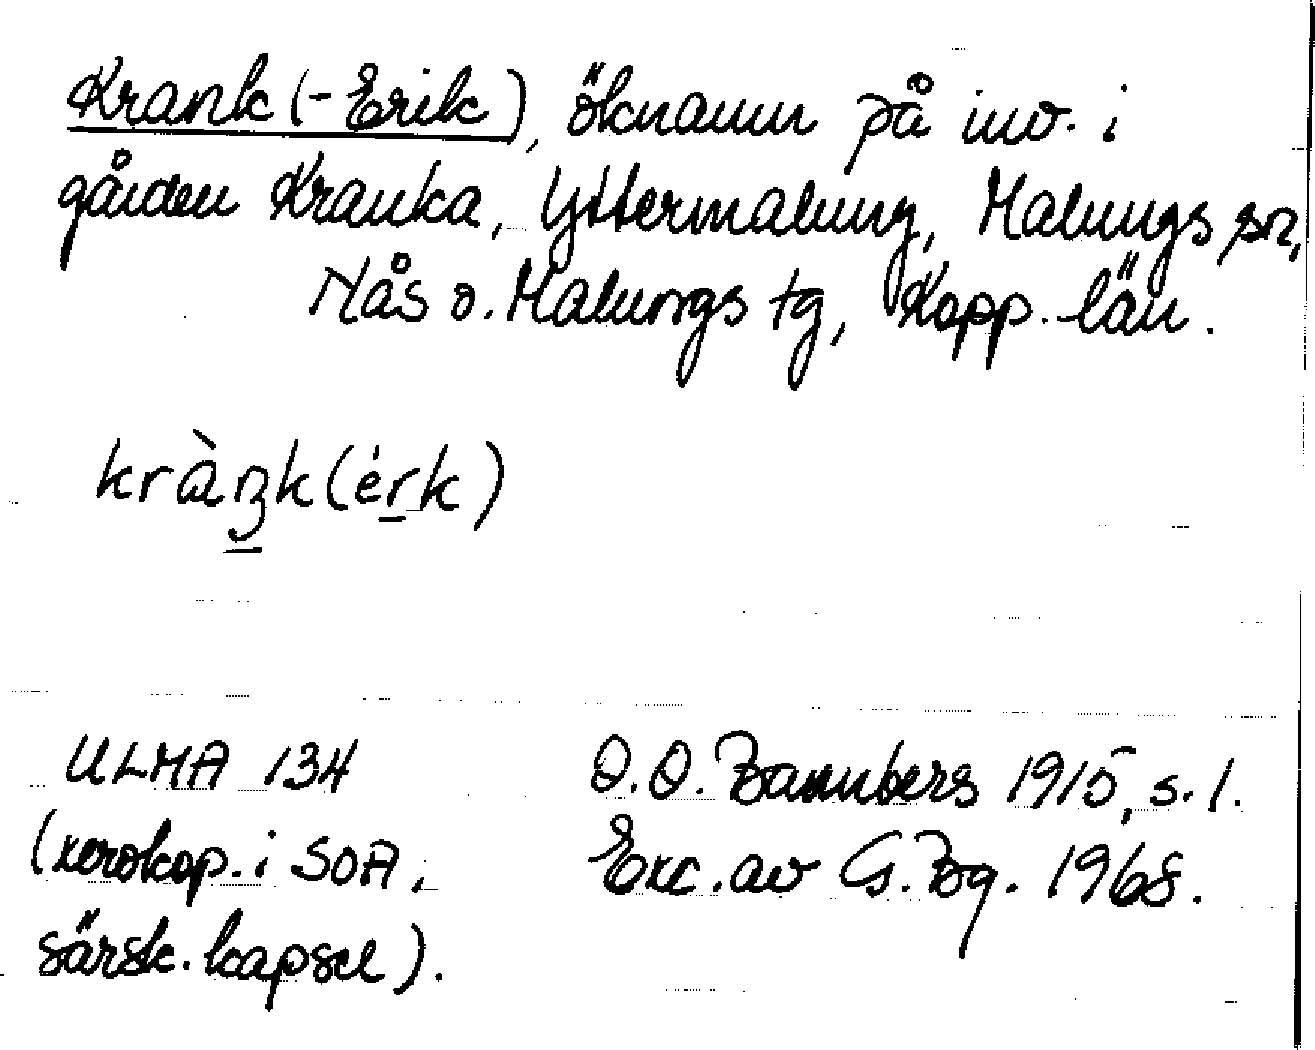 Krank(-Erik), öknamn på inv. i
gården Kranka, Yttermalung, Malungs sn,
Nås o. Malungs tg, Kopp. län.
kràŋk(érk)
ULMA 134
(xerokop. i SOA,
särsk. kapsel).
O.O. Bannbers 1915, s. 1.
Exc. av G. Bg. 1968.